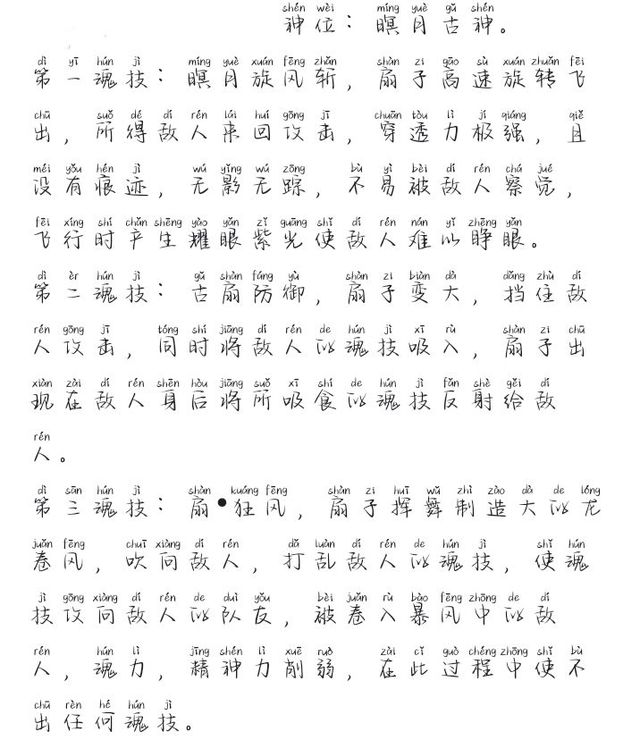 shén wèi míng yuè gǔ shén
神位：瞑月古神。
dì yī hún jì míng yuè xuán fēng zhǎn shàn zi gāo sù xuán zhuǎn fēi
第一魂技：瞑月旋风斩，扇子高速旋转飞
chū suǒ dé dí rén lái huí gōng jī chuān tòu lì jí qiáng qiě
出，所得敌人来回攻击，穿透力极强，且
méi yǒu hén jì wú yǐng wú zōng bù yì bèi dí rén chá jué
没有痕迹，无影无踪，不易被敌人察觉，
fēi xíng shí chǎn shēng yào yǎn zǐ guāng shǐ dí rén nán yǐ zhēng yǎn
飞行时产生耀眼紫光使敌人难以睁眼。
dì èr hún jì gǔ shàn fáng yù shàn zi biàn dà dǎng zhù dí
第二魂技：古扇防御，扇子变大，挡住敌
rén gōng jī tóng shí jiāng dí rén de hún jì xī rù shàn zi chū
人攻击，同时将敌人的魂技吸入，扇子出
xiàn zài dí rén shēn hòu jiāng suǒ xī shí de hún jì fǎn shè gěi dí
现在敌人身后将所吸食的魂技反射给敌
rén
人。
dì sān hún jì shàn kuáng fēng shàn zi huī wǔ zhì zào dà de lóng
第三魂技：扇•狂风，扇子挥舞制造大的龙
juǎn fēng chuī xiàng dí rén dǎ luàn dí rén de hún jì shǐ hún
卷风，吹向敌人，打乱敌人的魂技，使魂
jì gōng xiàng dí rén de duì yǒu bèi juǎn rù bào fēng zhōng de dí
技攻向敌人的队友，被卷入暴风中的敌
rén hún lì jīng shén lì xuē ruò zài cǐ guò chéng zhōng shǐ bù
人，魂力，精神力削弱，在此过程中使不
chū rèn hé hún jì
出任何魂技。